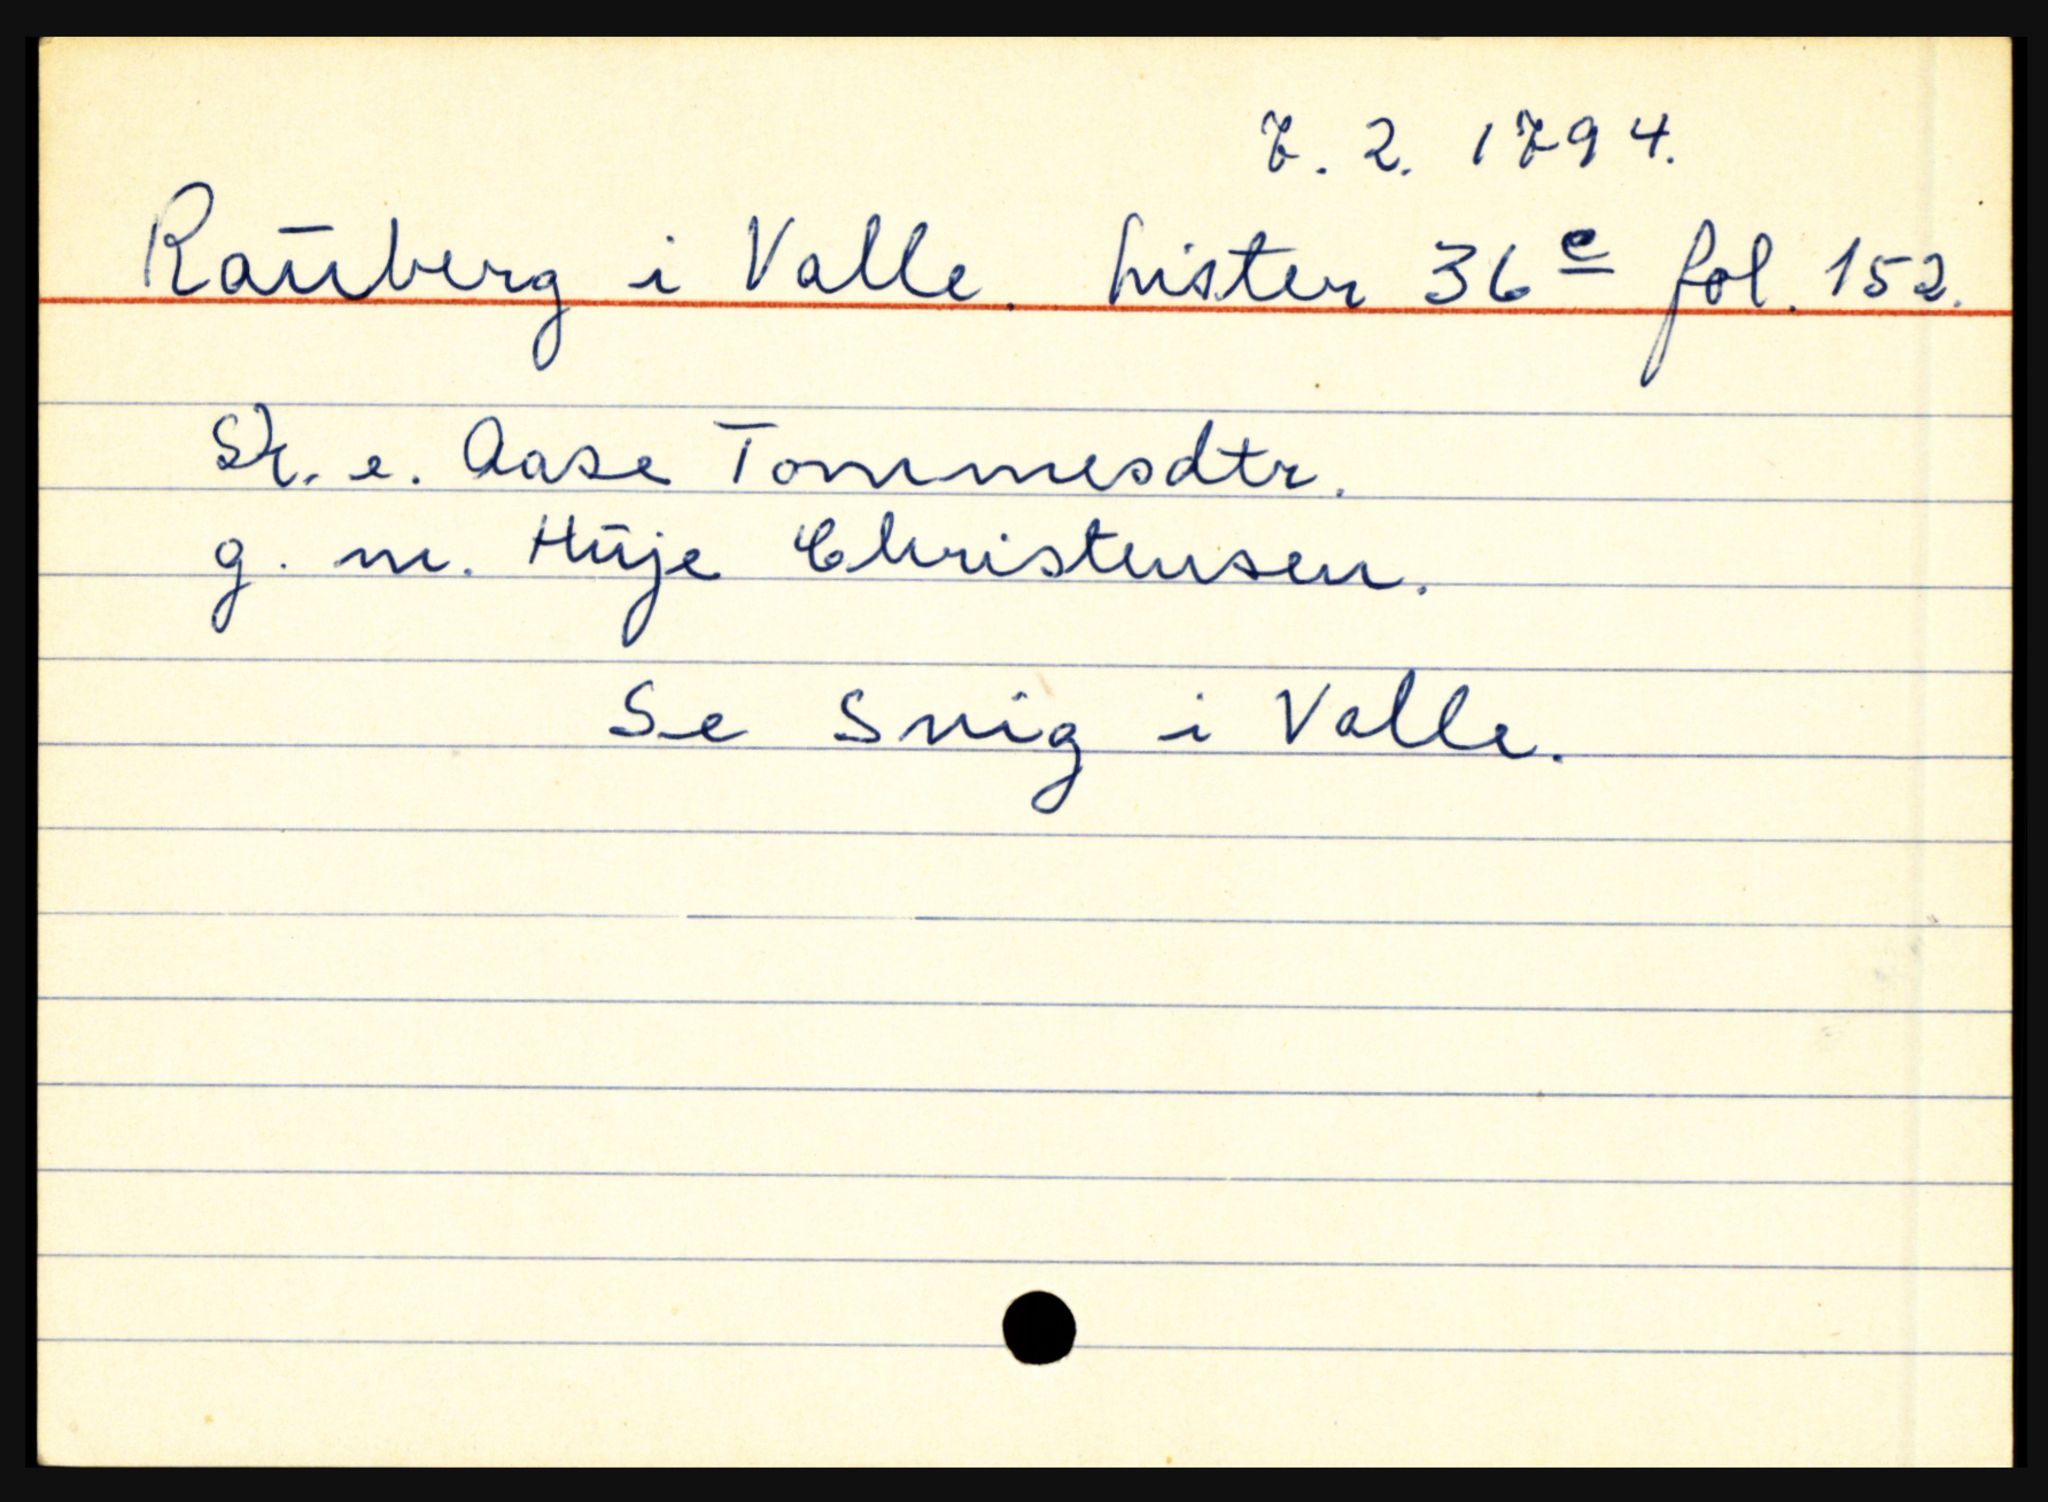 7. 2. 1794.
Rauberg i Valle. Lister 36 e fol. 152.
Sk. e. Aase Tommesdtr.
g. m. Huje Christensen.
Se Snig i Valle.